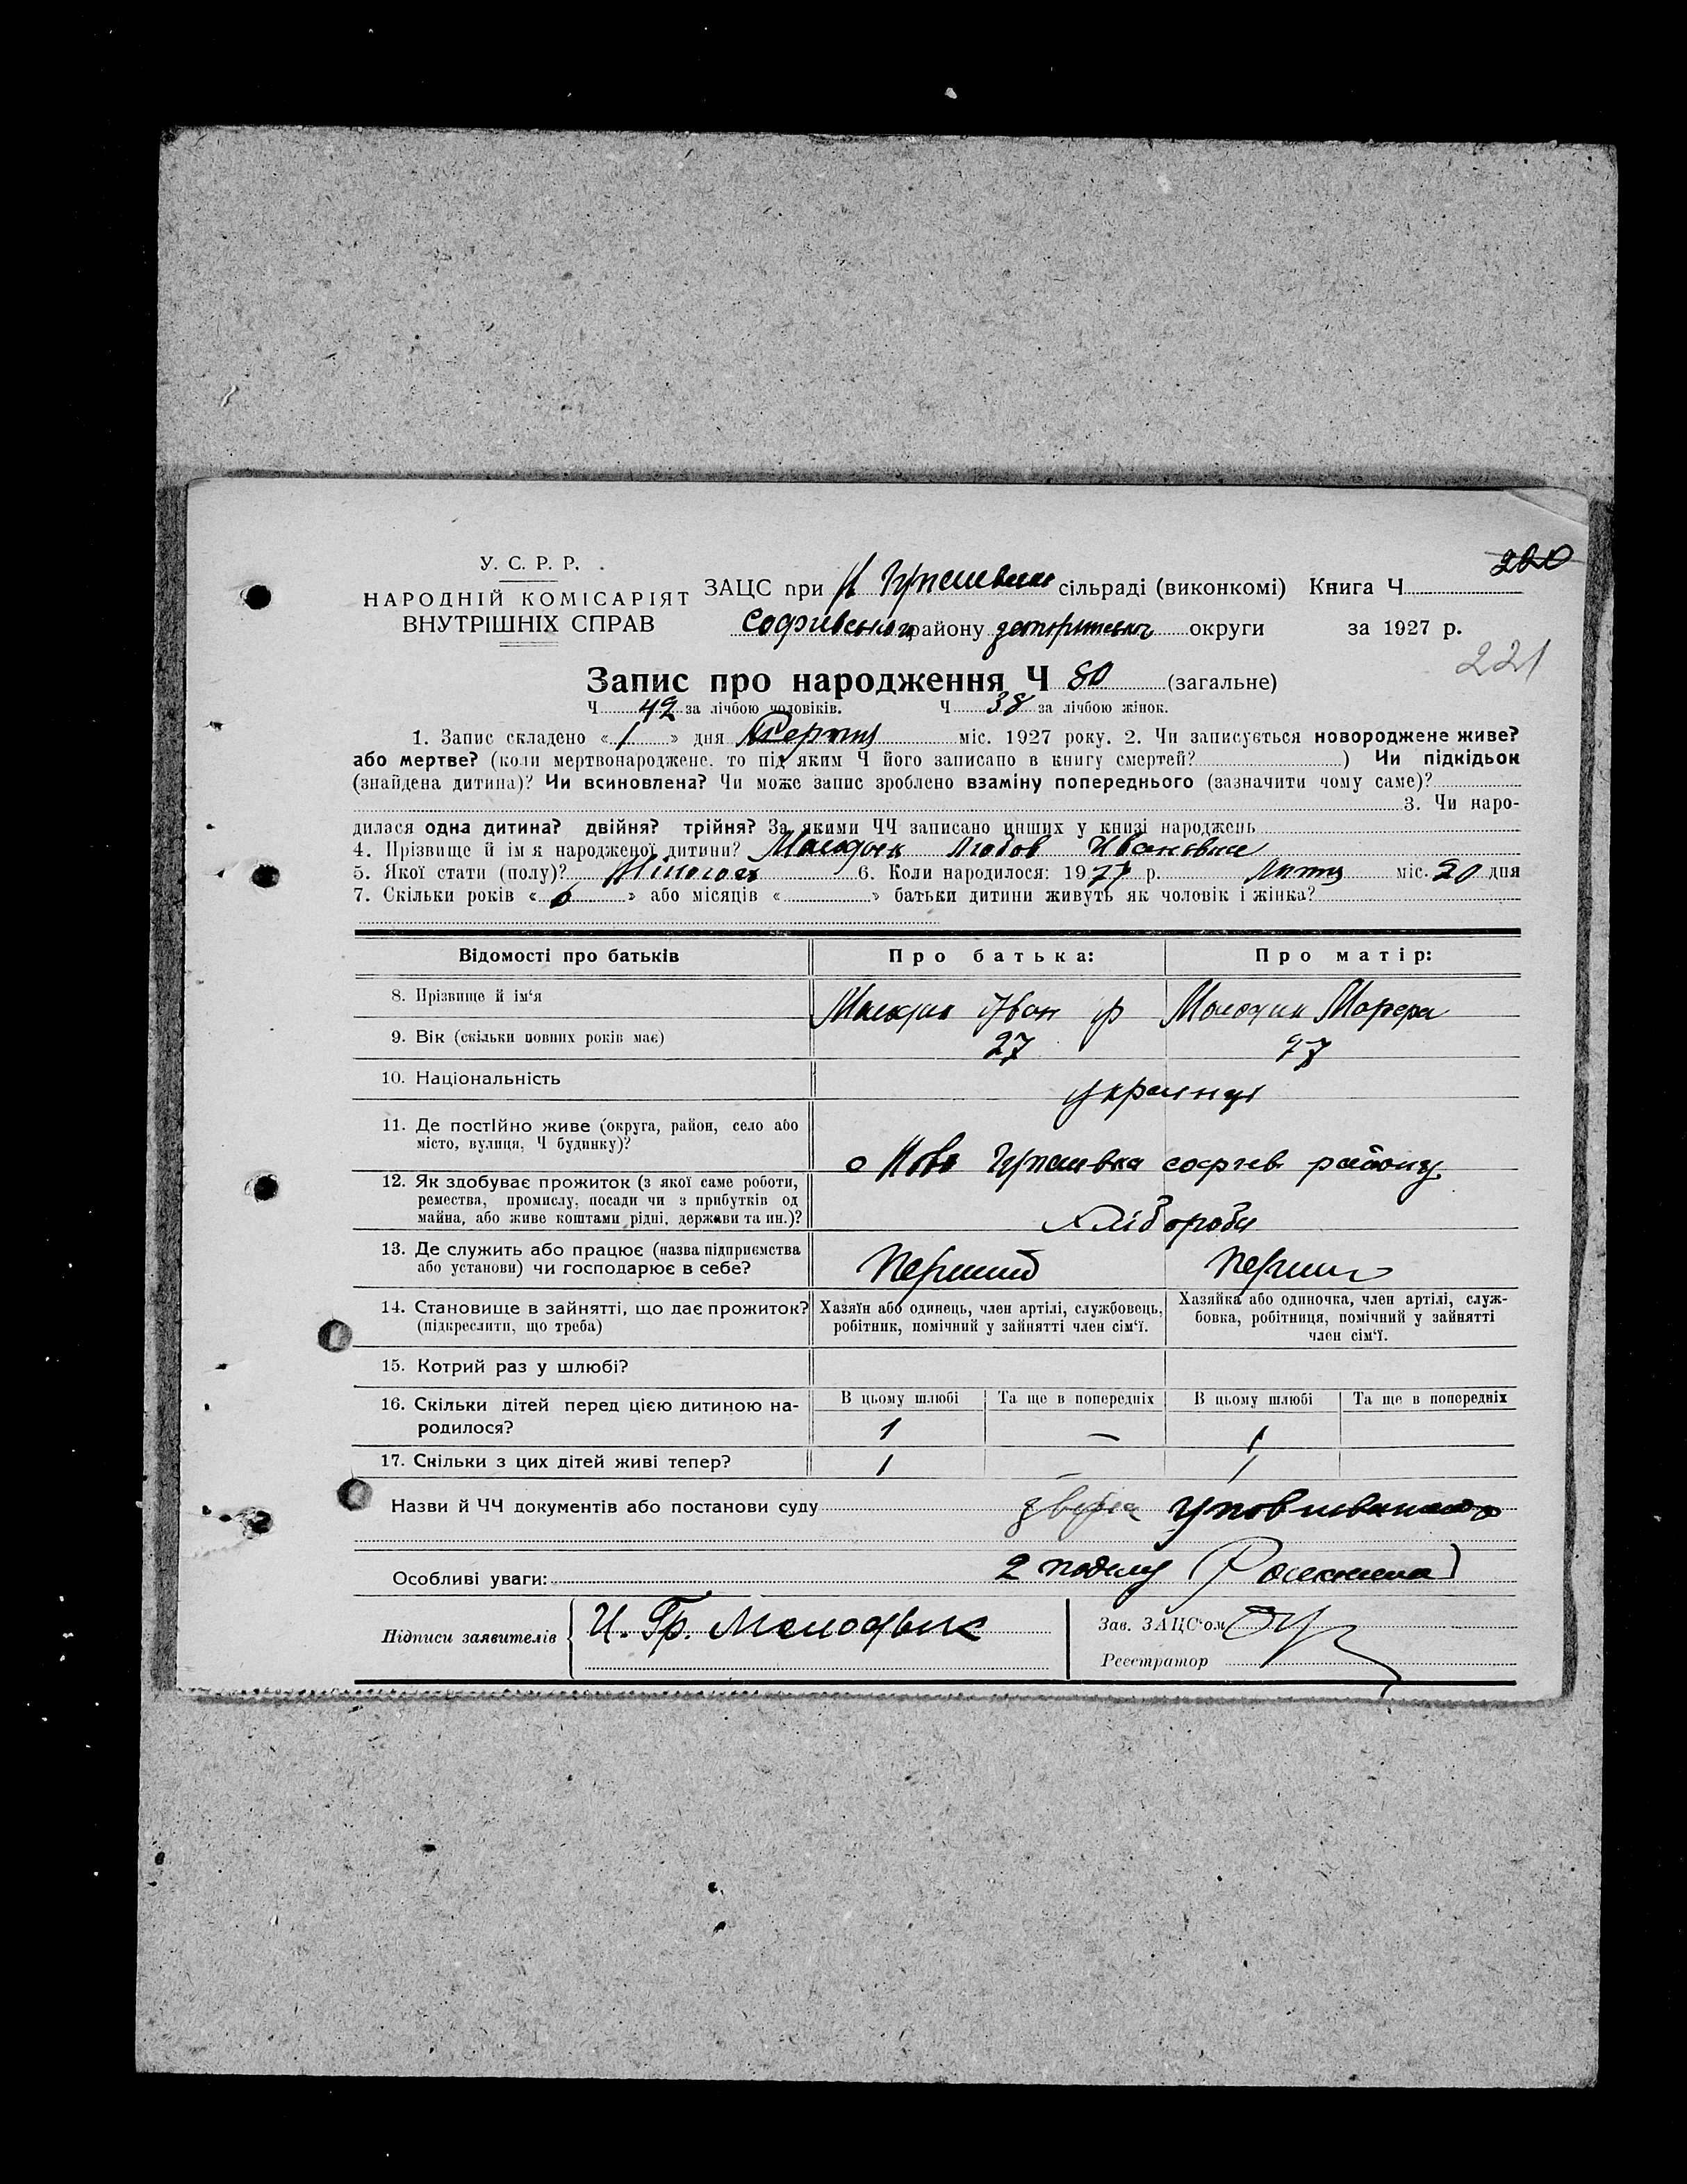 200
У. С. Р. Р.
НАРОДНІЙ КОМІСАРІЯТ
ВНУТРІШНІХ СПРАВ
ЗАЦС при сільраді (виконкомі) Книга Ч
району округи за 1927 р.
221
Запис про народження Ч 80 (загальне)
Ч 42 за лічбою чоловіків. Ч 38 за лічбою жінок.
1. Запис складено « 1 » дня Серпня міс. 1927 року. 2. Чи записується новороджене живе?
або мертве? (коли мертвонароджене, то під яким Ч його записано в книгу смертей? ) Чи підкідьок
(знайдена дитина)? Чи всиновлена? Чи може запис зроблено взаміну попереднього (зазначити чому саме)?
3. Чи наро-
дилася одна дитина? двійня? трійня? За якими ЧЧ записано инших у книзі народжень
4. Прізвище й ім'я народженої дитини? Любов Ивановна
5. Якої стати (полу)? Жіночої 6. Коли народилося: 1927 р. Липня міс. 20 дня
7. Скільки років « 6 » або місяців « » батьки дитини живуть як чоловік і жінка?
Відомості про батьків Про батька: Про матір:
8. Прізвище й ім'я Іван
9. Вік (скільки повних років має) 27 27
10. Національність українці
11. Де постійно живе (округа, район, село або
місто, вулиця, Ч будинку)?
с Ново софіев району
12. Як здобуває прожиток (з якої саме роботи,
ремества, промислу, посади чи з прибутків од
майна, або живе коштами рідні, держави та ин.)?
хлібороби
13. Де служить або працює (назва підприємства
або установи) чи господарює в себе?
Перший
14. Становище в зайнятті, що дає прожиток?
(підкреслити, що треба)
Хазяїн або одинець, член артілі, службовець,
робітник, помічний у зайнятті член сім'ї.
Хазяйка або одиночка, член артілі, служ-
бовка, робітниця, помічний у зайнятті
член сім'ї.
15. Котрий раз у шлюбі?
В цьому шлюбі Та ще в попередніх В цьому шлюбі Та ще в попередніх
16. Скільки дітей перед цією дитиною на-
родилося?
1 — 1
17. Скільки з цих дітей живі тепер? 1 — 1
Назви й ЧЧ документів або постанови суду
Особливі уваги: 2
Підписи заявителів И. Гр. Молодык
Зав. ЗАЦС'ом
Реєстратор